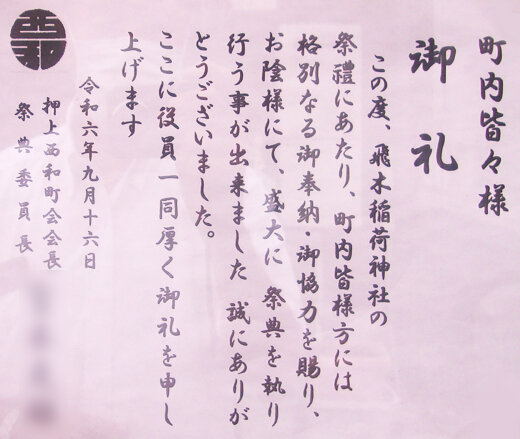 町内皆々様
御礼
この度、飛木稲荷神社の
祭禮にあたり、町内皆様方には
格別なる御奉納・御協力を賜り、
お陰様にて、盛大に 祭典を執り
行う事が出来ました 誠にありが
とうございました。
ここに役員一同厚く御礼を申し
上げます
令和六年九月十六日
押上西和町会会長
祭典委員長
西和